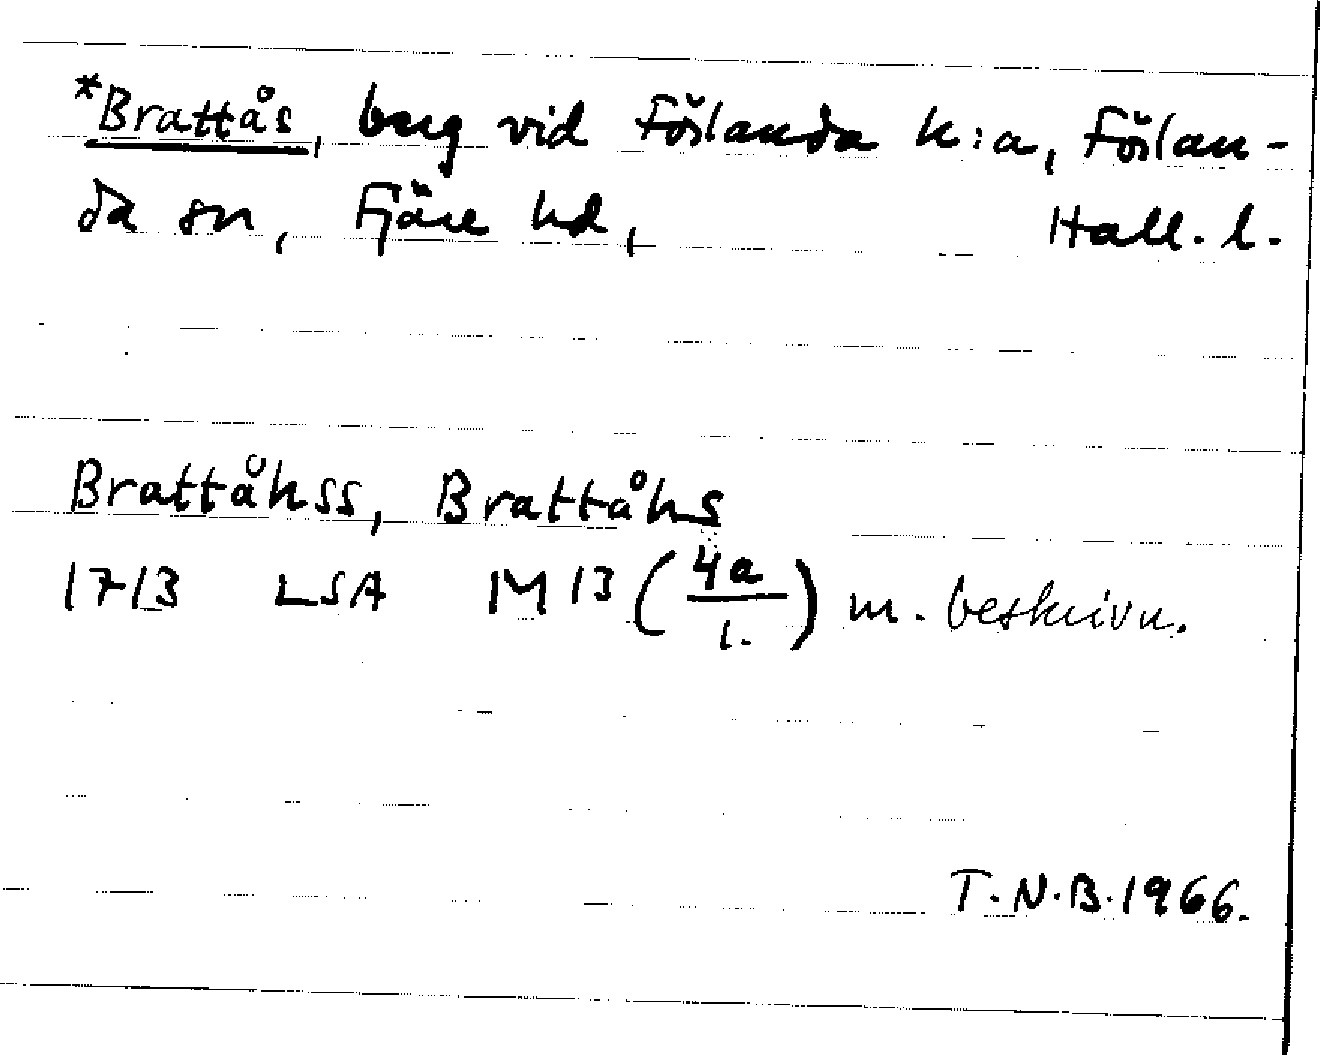 *Brattås, berg vid Förlanda k:a, Förlan-
da sn, Fjäre hd, Hall. l.
Brattåhss, Brattåhs
1713 LSA M13 (4a/1.) m. beskrivn.
T.N.B. 1966.